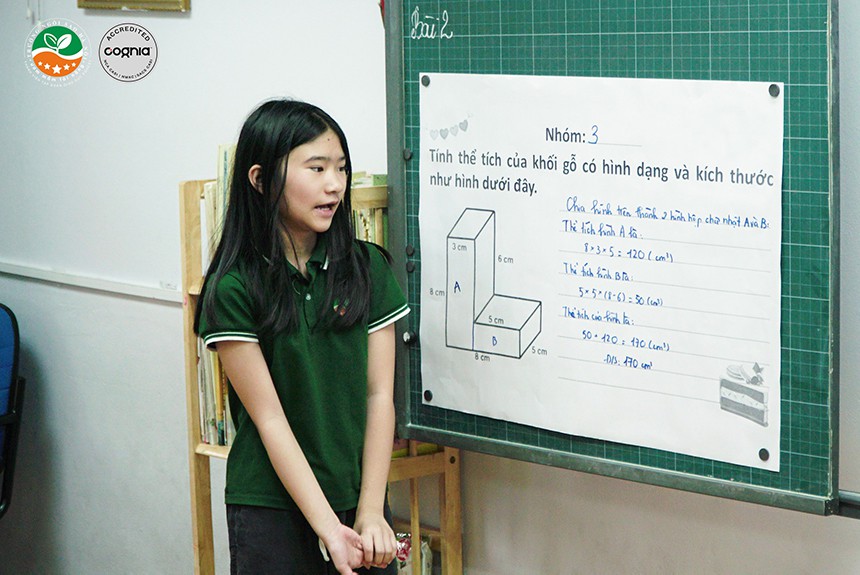 ACCREDITED
cognia
Bài 2
Nhóm: 3
Tính thể tích của khối gỗ có hình dạng và kích thước
như hình dưới đây.
Chia hình trên thành 2 hình hộp chữ nhật A và B:
Thể tích hình A là:
8 x 3 x 5 = 120 (cm³)
Thể tích hình B là:
5 x 5 x (8 - 6) = 50 (cm³)
Thể tích của hình là:
50 + 120 = 170 (cm³)
Đ/S: 170 cm³
3 cm
6 cm
A
8 cm
5 cm
B
8 cm
5 cm